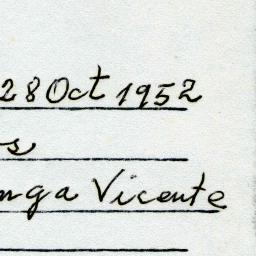 28 Oct 1952
s
nga Vicente